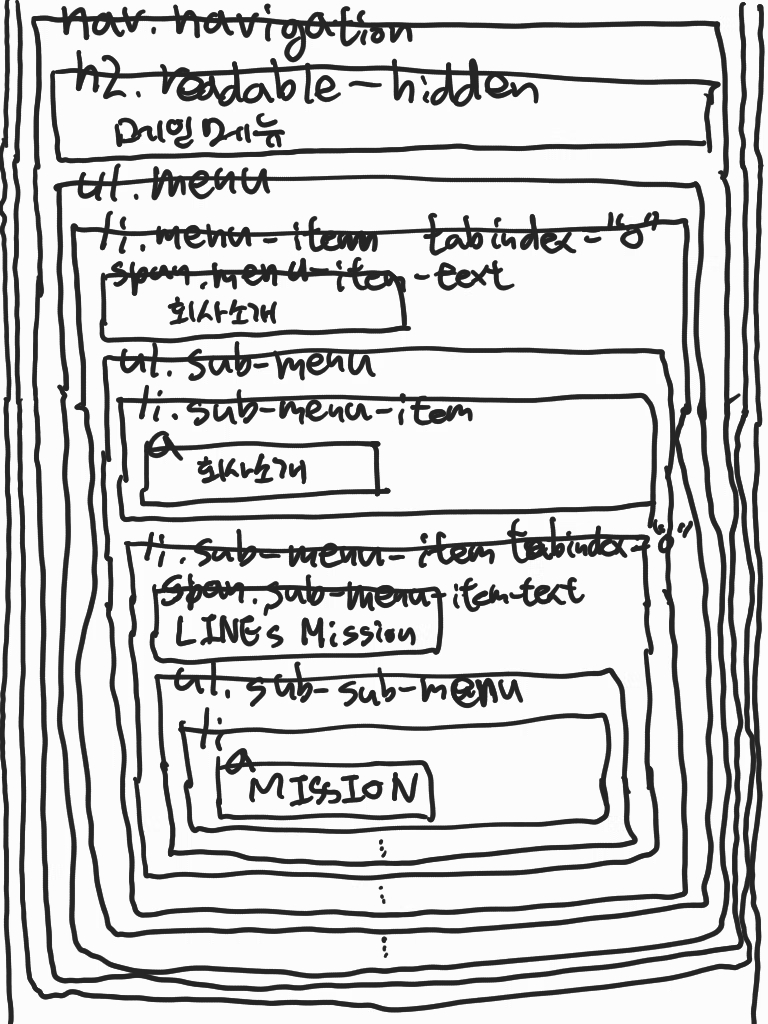 nav. navigation
h2. readable-hidden
메인메뉴
ul. menu
li. menu-item tabindex="0"
span.menu-item-text
회사소개
ul. sub-menu
li. sub-menu-item
a
회사소개
li. sub-menu-item tabindex="0"
span.sub-menu-item-text
LINE's Mission
ul. sub-sub-menu
li
a
MISSION